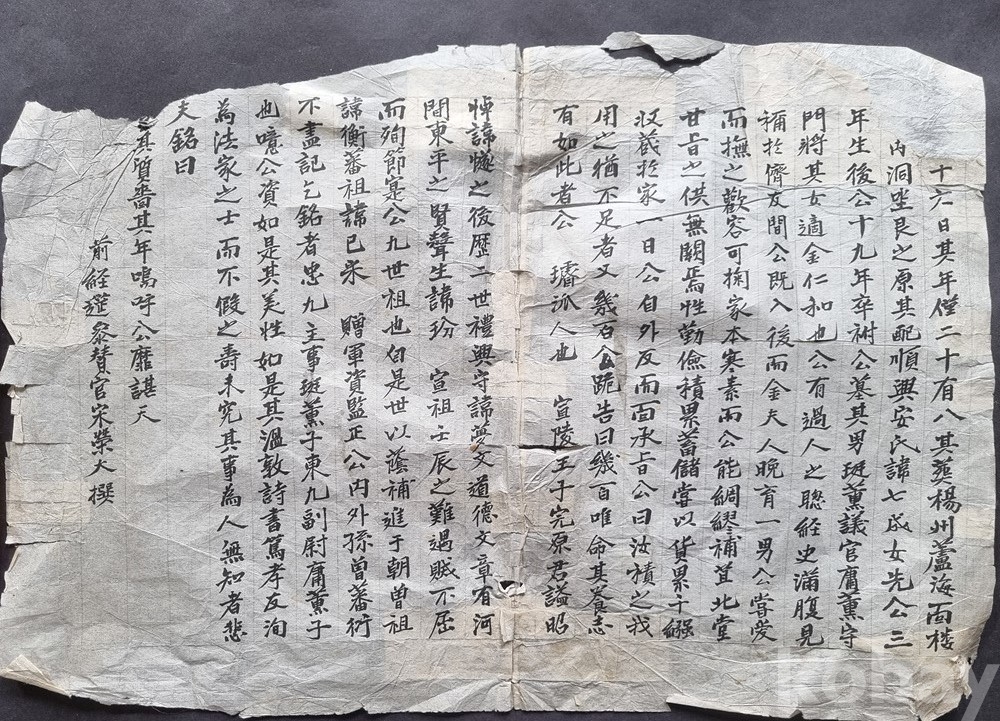 十六日其年僅二十有八其葬楊州蘆海面楼
內洞坐艮之原其配順興安氏諱七成女先公三
年生後公十九年卒祔公墓其男珽薰議官庸薰守
門將其女適金仁和也公有過人之聡経史滿腹見
稱於儕友間公旣入後而金夫人晩育一男公甞愛
而撫之歡容可掬家本寒素而公能綢繆補苴北堂
甘旨之供無闕焉性勤儉積累蓄儲甞以貨累千緡
收藏於家一日公自外反而面承旨公曰汝積之我
用之猶不足者又幾百公跪告曰幾百唯命其養志
有如此者公 璿派人也 宣陵王子完原君諡昭
悼諱㥞之後歴二世禮興守諱夢文道德文章有河
間東平之賢聲生諱玢 宣祖壬辰之難遇賊不屈
而殉節寔公九世祖也自是世以蔭補進于朝曽祖
諱衡蕃祖諱已宋 贈軍資監正公內外孫曽蕃衍
不盡記乞銘者忠九主事珽薰子東九副尉庸薰子
也噫公資如是其美性如是其溫敦詩書篤孝友洵
為法家之士而不假之壽未究其事為人無知者悲
夫銘曰
其質嗇其年嗚呼公靡諶天
前経筵叅賛官宋榮大撰
kobay